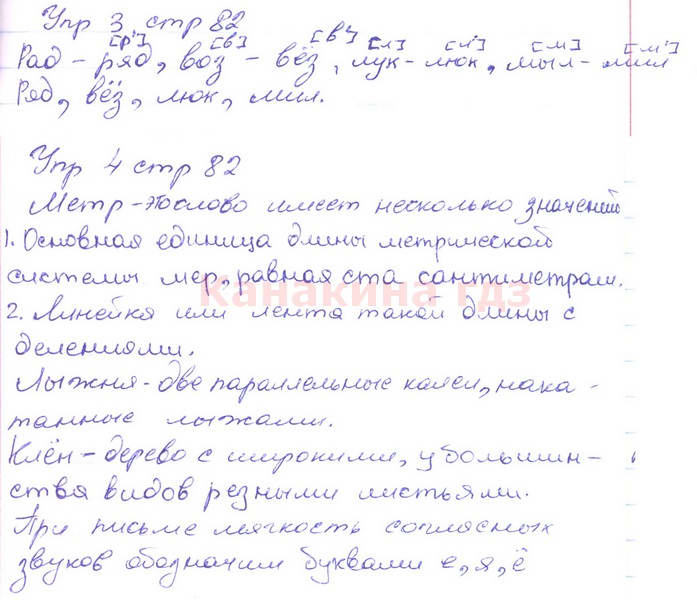 Упр 3 стр 82
[р'] [в] [в'] [л] [л'] [м] [м']
Рад - ряд, воз - вёз, лук - люк, мыл - мил
Ряд, вёз, люк, мил.
Упр 4 стр 82
Метр - это слово имеет несколько значений
1. Основная единица длины метрической
системы мер, равная ста сантиметрам.
Канакина гдз
2. Линейка или лента такой длины с
делениями.
Лыжня - две параллельные колеи, нака -
танные лыжами.
Клён - дерево с широкими, у большин -
ства видов резными листьями.
При письме мягкость согласных
звуков обозначим буквами е, я, ё